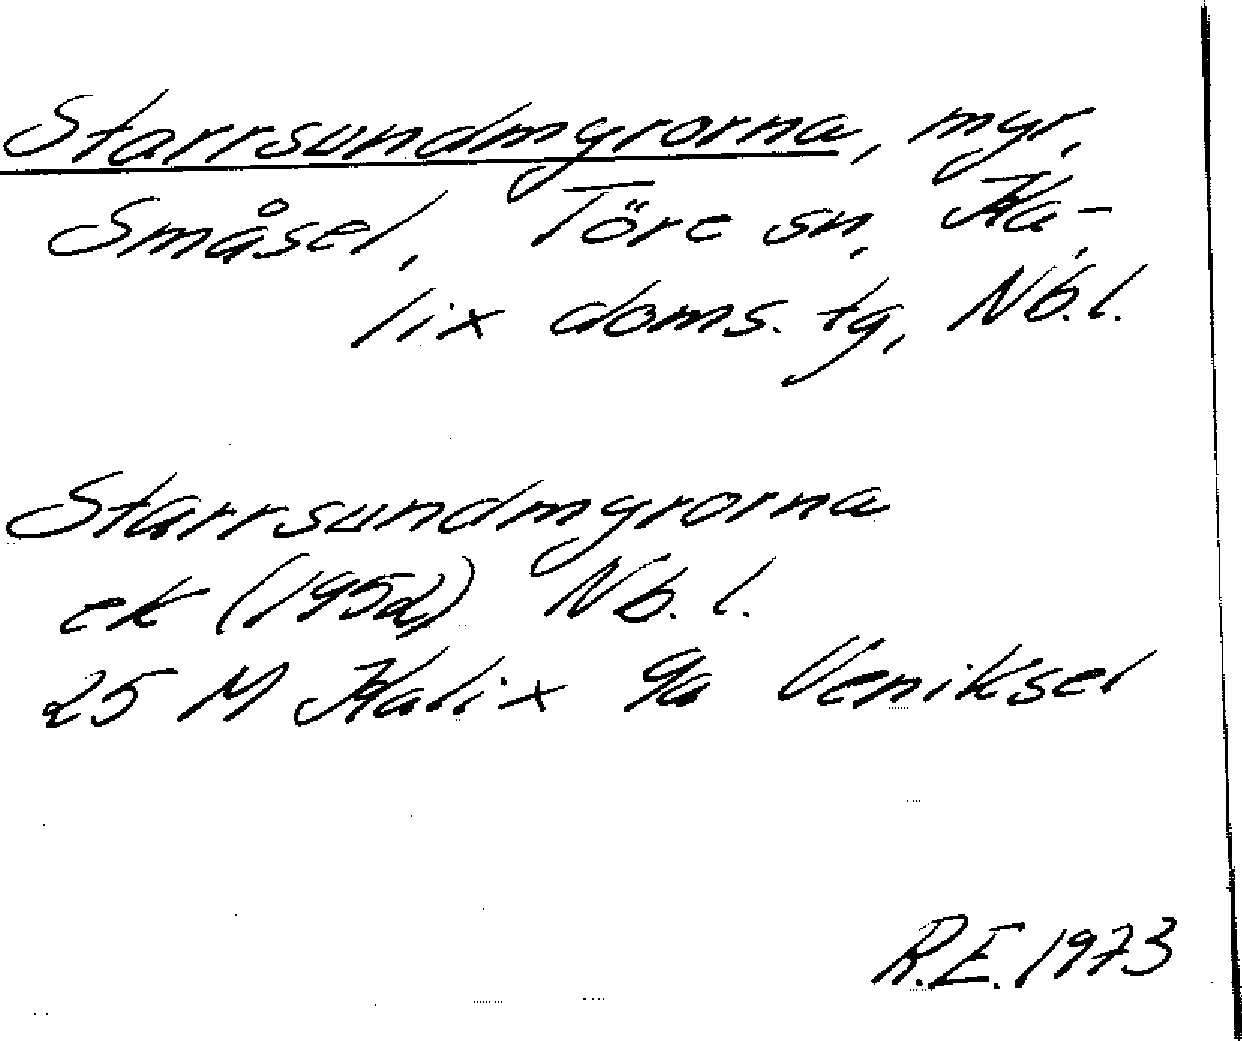 Starrsundmyrorna, myr,
Småsel, Töre sn, Ka-
lix doms. tg, Nb. l.
Starrsundmyrorna
ek (1952) Nb. l.
25 M Kalix 9a Veniksel
R.E. 1973